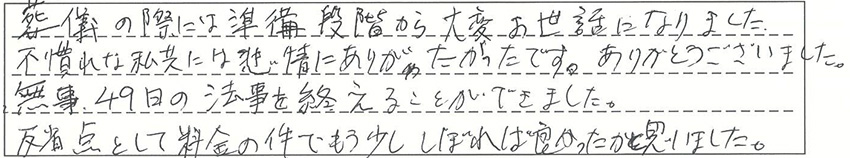 葬儀の際には準備段階から大変お世話になりました。
不慣れな私共には非情にありがたかったです。ありがとうございました。
無事、49日の法事を終えることができました。
反省点として料金の件でもう少ししぼれれば良かったかと思いました。